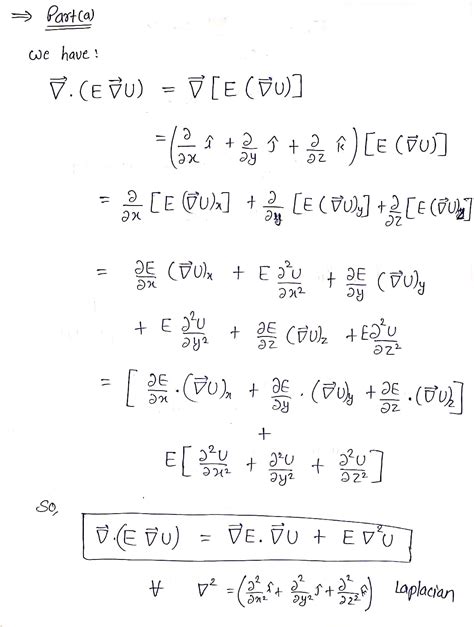 ⇒ Part(a)
we have:
∇⃗.(E ∇⃗U) = ∇⃗[E (∇⃗U)]
= (∂/∂x î + ∂/∂y ĵ + ∂/∂z k̂) [E (∇⃗U)]
= ∂/∂x [E (∇⃗U)x] + ∂/∂y [E (∇⃗U)y] + ∂/∂z [E (∇⃗U)z]
= ∂E/∂x (∇⃗U)x + E ∂²U/∂x² + ∂E/∂y (∇⃗U)y
+ E ∂²U/∂y² + ∂E/∂z (∇⃗U)z + E ∂²U/∂z²
= [ ∂E/∂x . (∇⃗U)x + ∂E/∂y . (∇⃗U)y + ∂E/∂z . (∇⃗U)z ]
+
E [ ∂²U/∂x² + ∂²U/∂y² + ∂²U/∂z² ]
So,
∇⃗.(E ∇⃗U) = ∇⃗E. ∇⃗U + E ∇²U
∀ ∇² = (∂²/∂x² î + ∂²/∂y² ĵ + ∂²/∂z² k̂) Laplacian